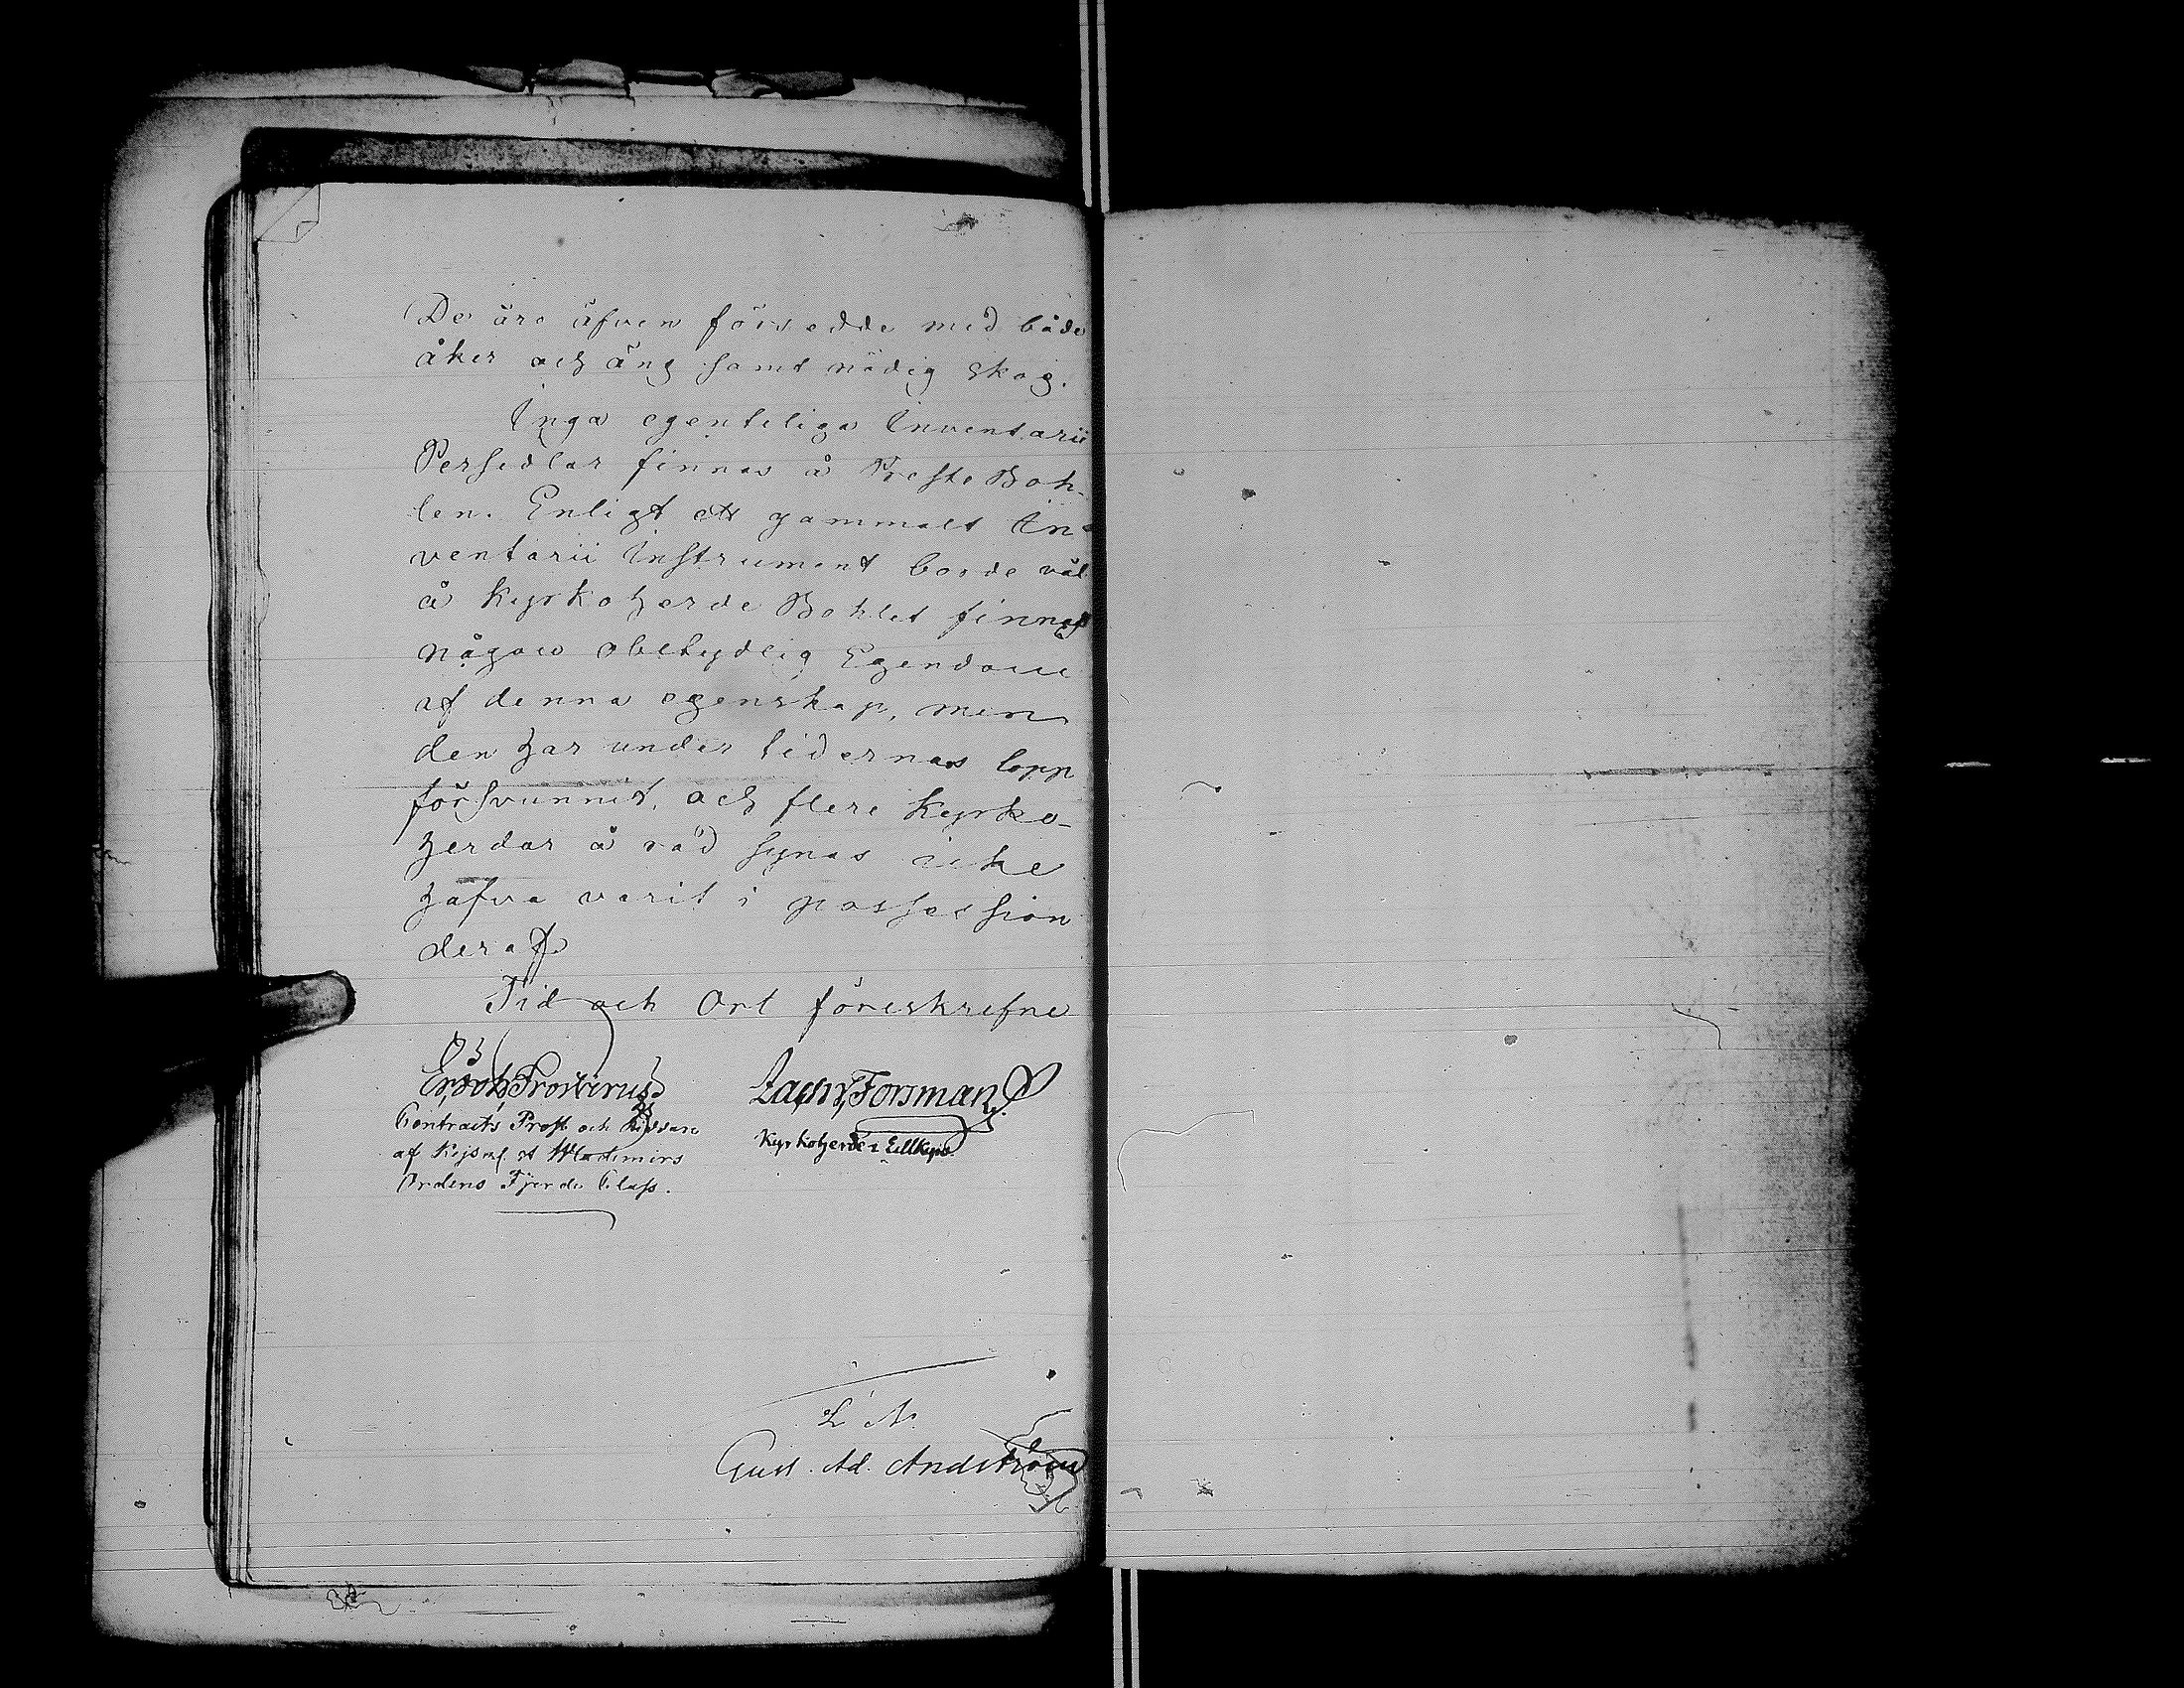 De äro äfven försedde med både
åker och äng samt nödig skog.
Inga egenteliga Inventarii
Persedlar finnas å Preste Boh-
len. Enligt ett gammalt In-
ventarii Instrument borde väl
å Kyrkoherde Bohlet finnas
någon obetydlig Egendom
af denna egenskap, men
den har under tidernas lopp
försvunnit, och flere Kyrko-
herdar å rad synas icke
hafva varit i possession
deraf
Tid och Ort föreskrefne
Erich Frosterus
Zachr. Forsman
Contracts Prost och Riddare
af Kejserl. St Wladimirs
Ordens Fjerde Class.
Kyrkoherde i
Gust. Ad. Andström